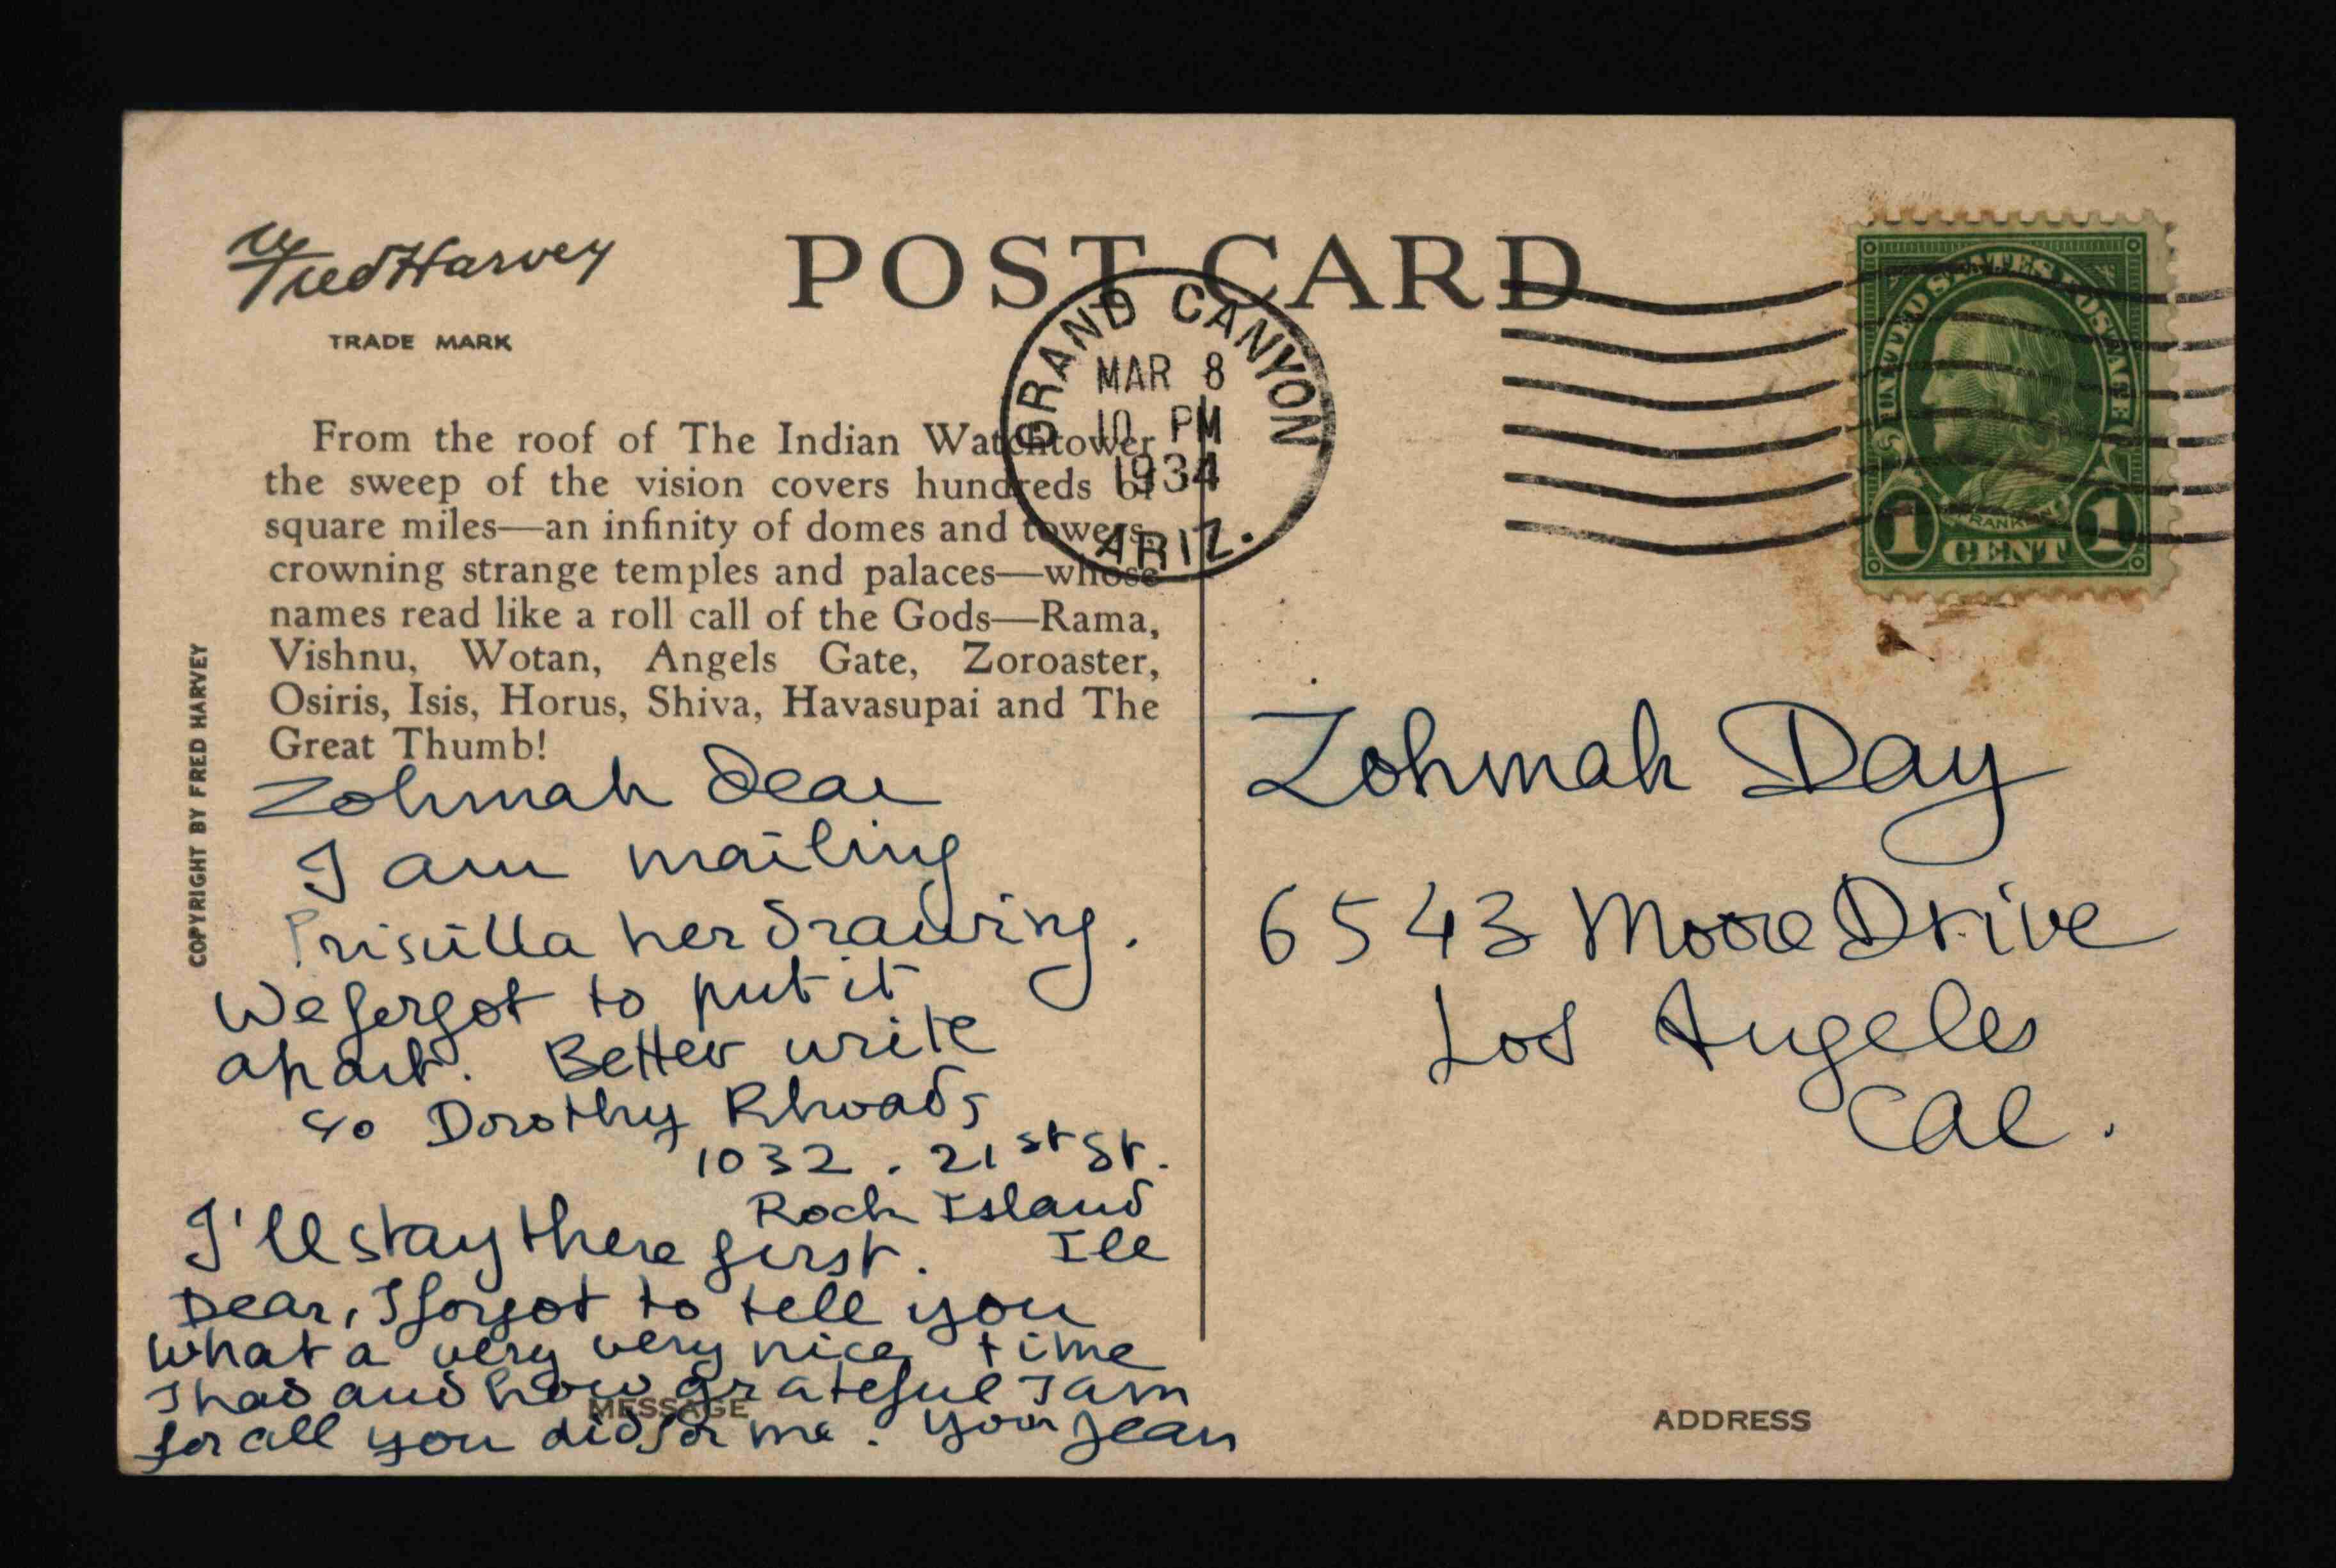 Fred Harvey
TRADE MARK
POST CARD
GRAND CANYON
MAR 8
10 PM
1934
ARIZ.
UNITED STATES POSTAGE
FRANKLIN
1 CENT 1
From the roof of The Indian Watchtower
the sweep of the vision covers hundreds of
square miles—an infinity of domes and towers,
crowning strange temples and palaces—whose
names read like a roll call of the Gods—Rama,
Vishnu, Wotan, Angels Gate, Zoroaster,
Osiris, Isis, Horus, Shiva, Havasupai and The
Great Thumb!
COPYRIGHT BY FRED HARVEY
Zohmah Dear
I am mailing
Priscilla her drawing.
We forgot to put it
apart. Better write
c/o Dorothy Rhoads
1032 . 21st St.
Rock Island
Ill
I'll stay there first.
Dear, I forgot to tell you
what a very very nice time
I had and how grateful I am
for all you did for me. Your Jean
MESSAGE
Zohmah Day
6543 Moore Drive
Los Angeles
Cal.
ADDRESS